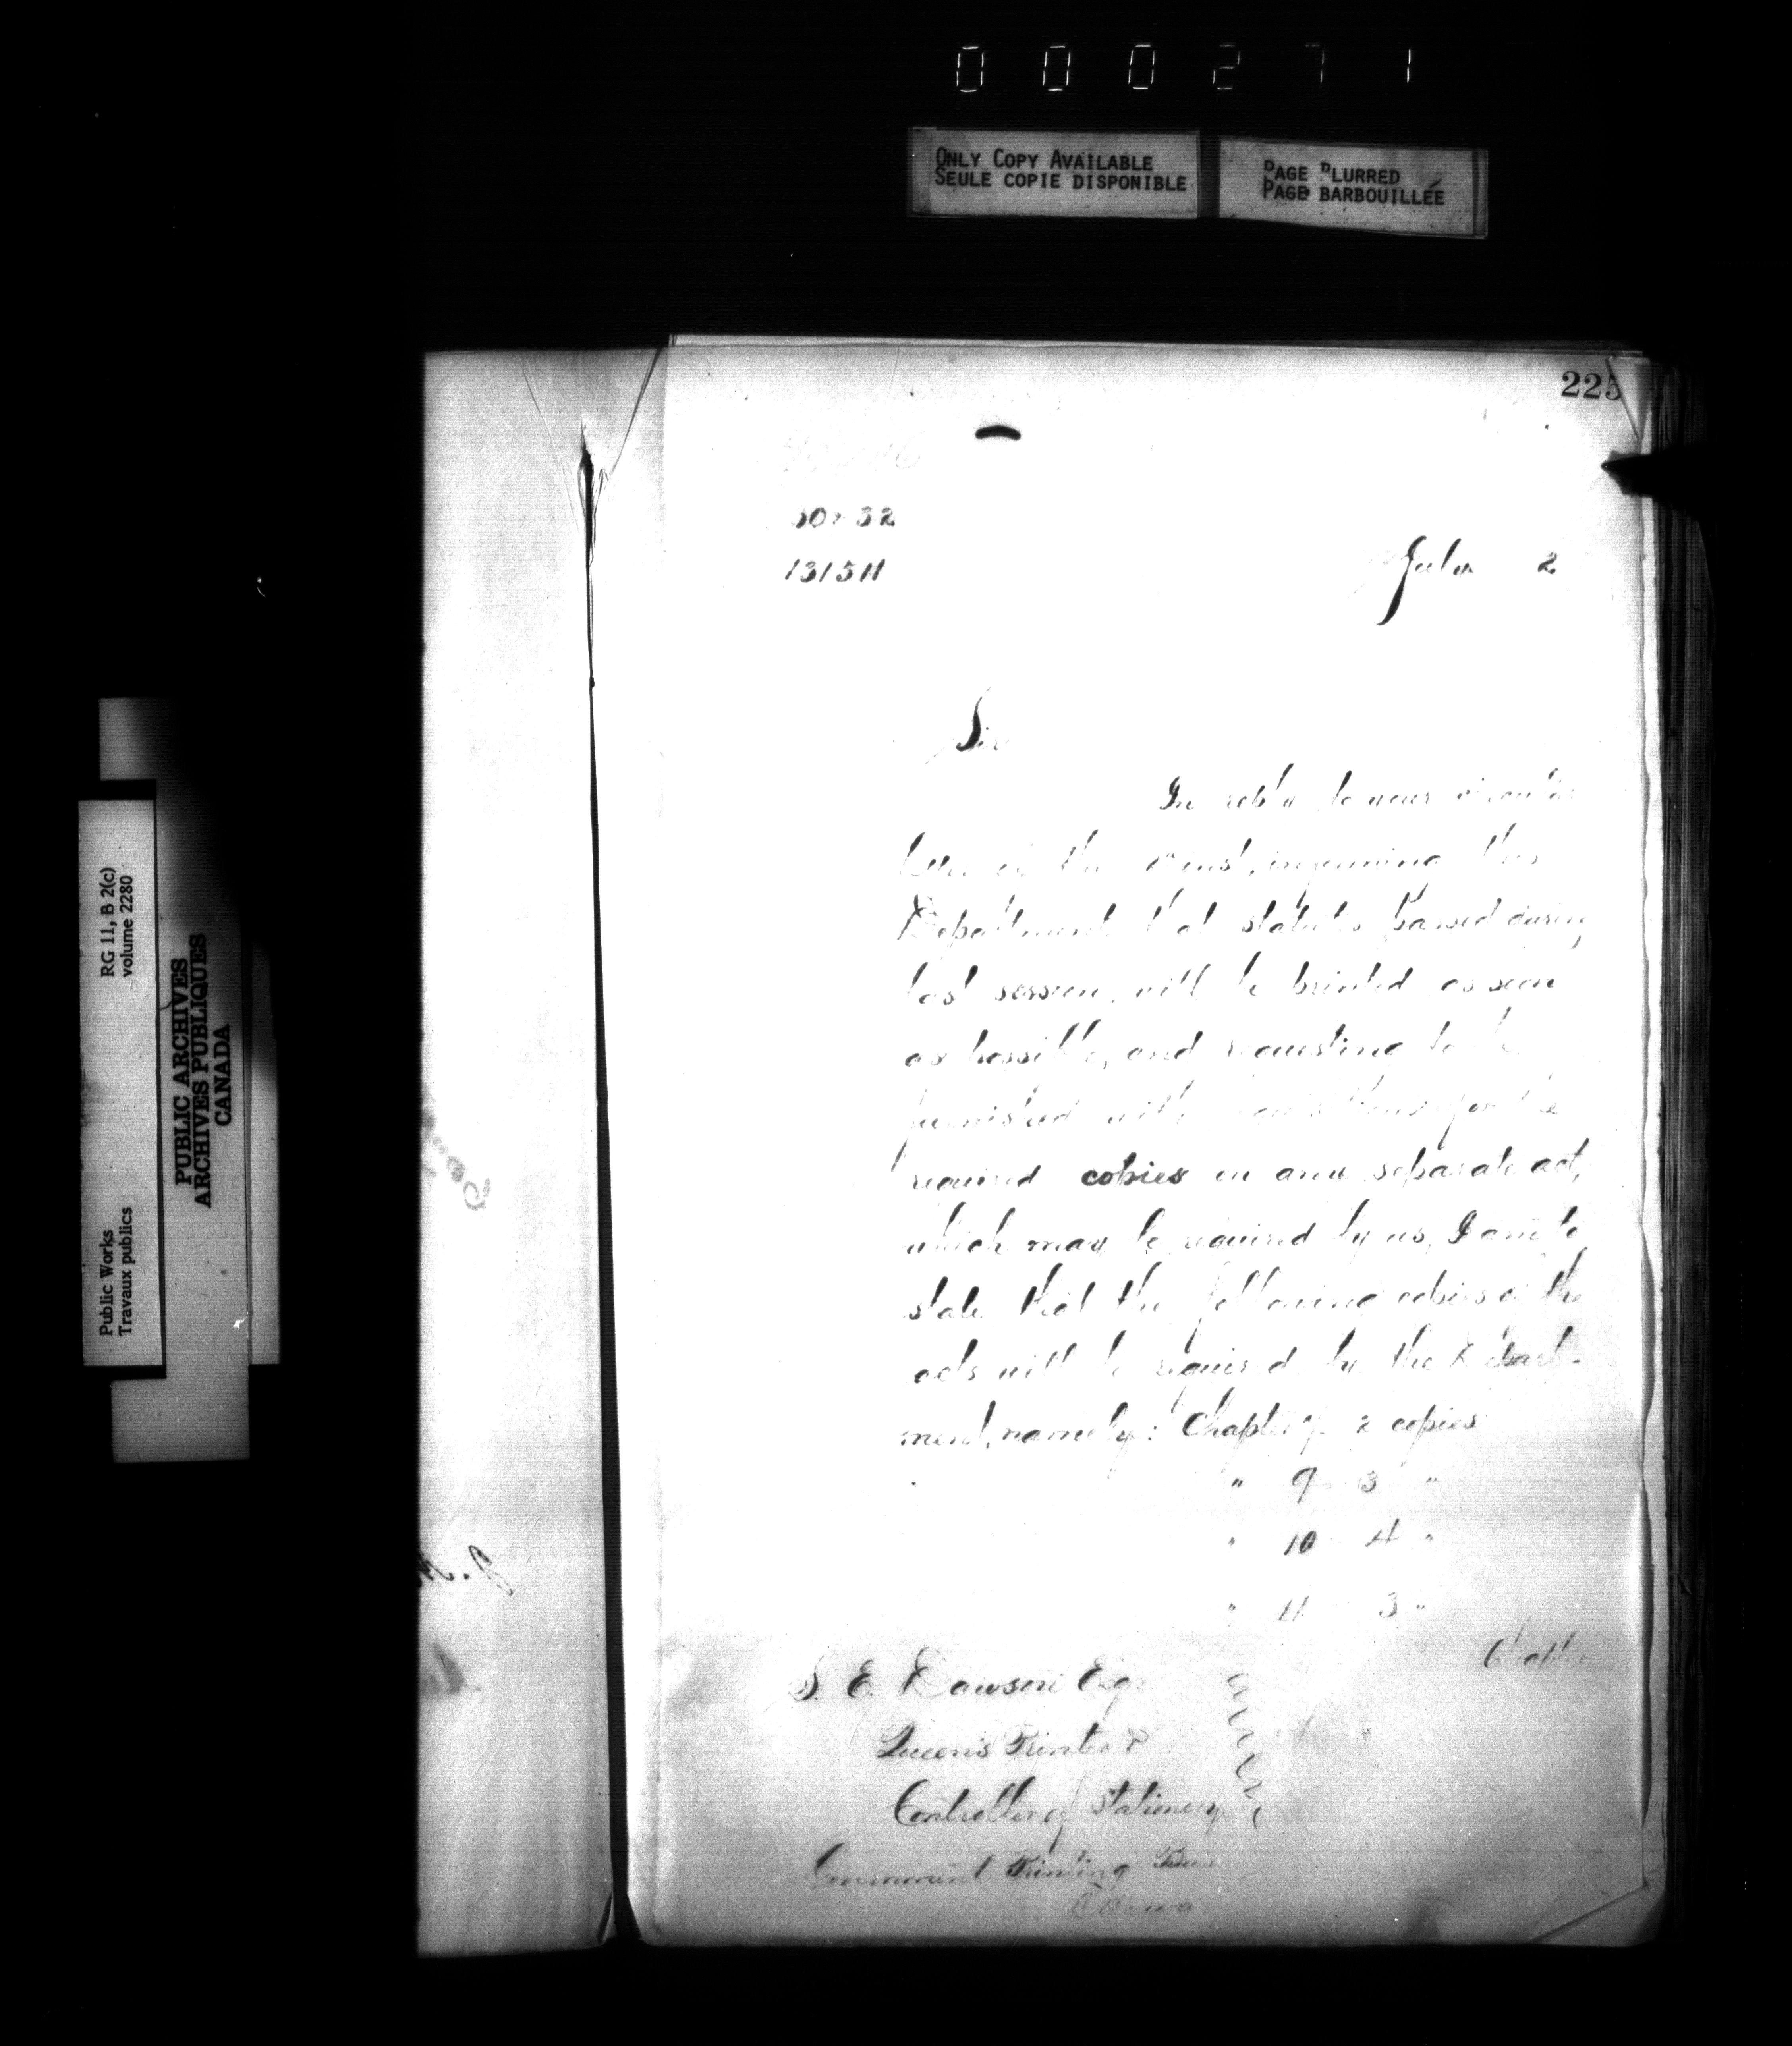 000271
ONLY COPY AVAILABLE
SEULE COPIE DISPONIBLE
PAGE BLURRED
PAGE BARBOUILLÉE
225
13151
July 2
Sir
In reply to your circular
letter of the inst, informing this
Department that statutes passed during
last session, will be printed as soon
as possible, and requesting to be
furnished with for the
required copies on any separate act,
which may be required by us, I am to
state that the following copies of the
acts will be required by the Depart-
ment, namely: Chapter 2 copies
" 9 - 3 "
" 10 4 "
" 11 3 "
Chapter
S. E. Dawson Esqr
Queen's Printer &
Controller of Stationery
Government Printing Bureau
Ottawa
RG 11, B 2(c)
volume 2280
Public Works
Travaux publics
PUBLIC ARCHIVES
ARCHIVES PUBLIQUES
CANADA